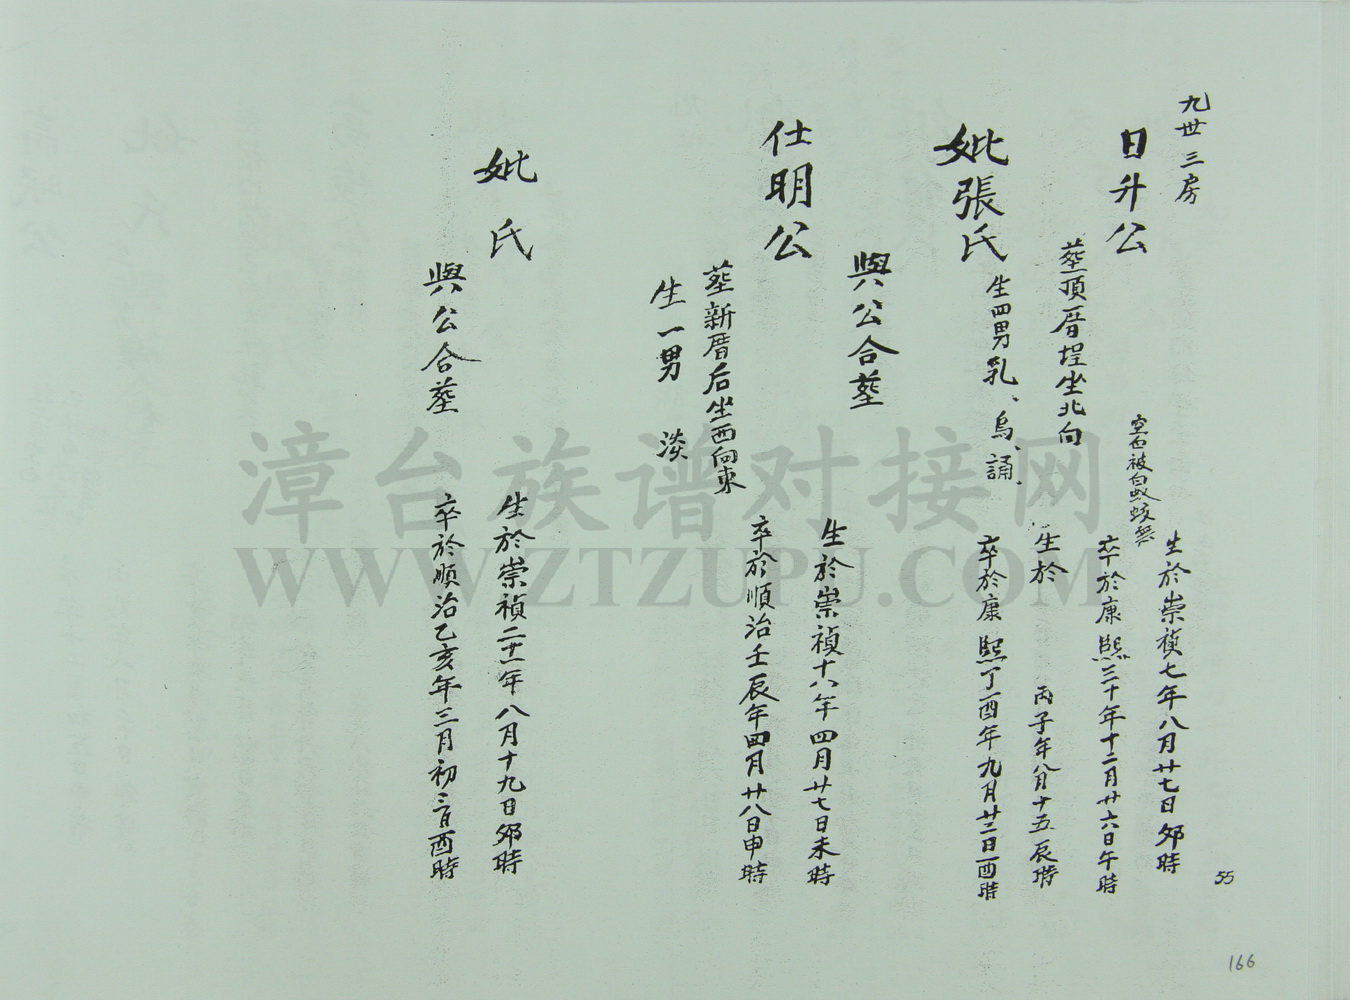 九世三房
日升公
生於崇禎七年八月廿七日卯時
空白被白蟻蛟
卒於康熙三十年十二月廿六日午時
葬頂厝埕坐北向
妣張氏
生於 丙子年八月十五辰時
生四男乳、烏、誦、
卒於康熙丁酉年九月廿二日酉時
與公合葬
仕明公
生於崇禎十八年四月廿七日未時
葬新厝后坐西向東
卒於順治壬辰年四月廿八日申時
生一男 淡
妣氏
生於崇禎二十一年八月十九日卯時
與公合葬
卒於順治乙亥年三月初三日酉時
55
166
漳台族谱对接网
WWW.ZTZUPU.COM